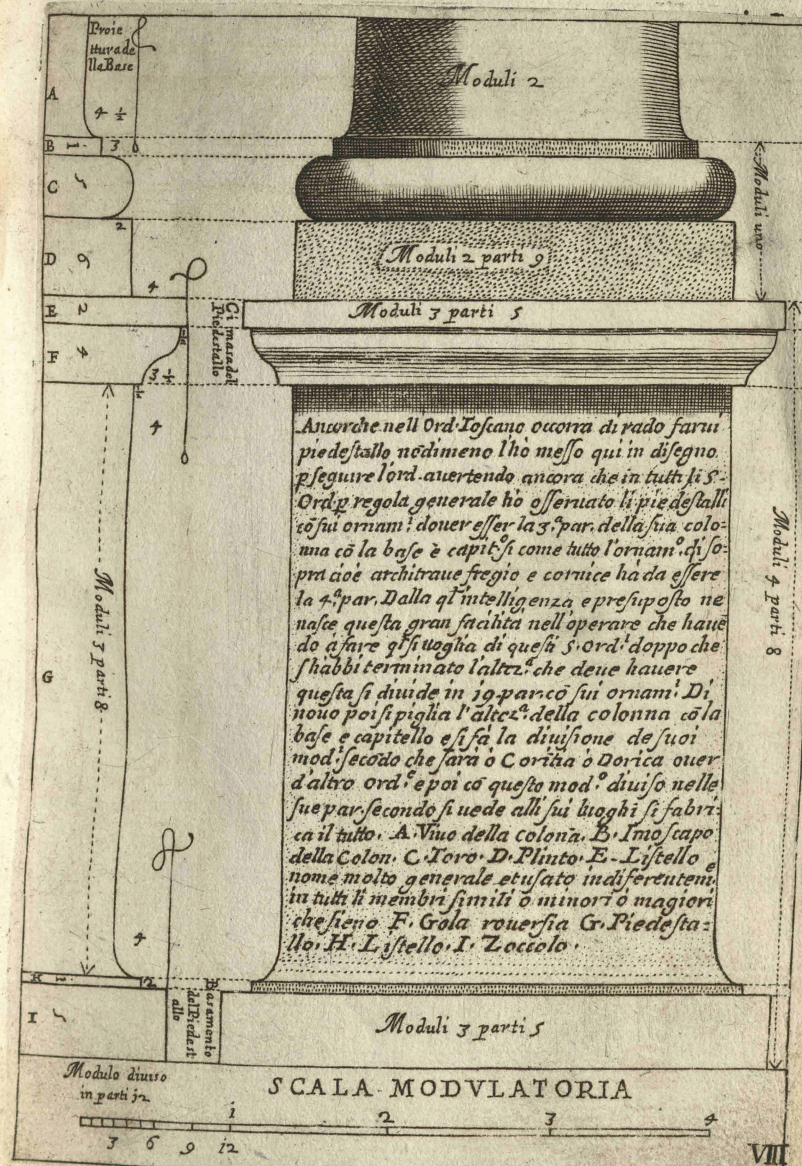 Proie
tturade
lla Base
A
4 ½
B 1 3
C 5
2
D 6
4
E 2
F 4
½
3 ½
½
4
G
Moduli 3 parti 8
4
H 1 2
I 5
Moduli 2
Moduli uno
Moduli 2 parti 9
Moduli 3 parti 5
Ci masa del
Piedestallo
Moduli 4 parti 8
Ancorche nell Ord. Toſcano occorra di rado farui
piedeſtallo nõdimeno l'ho meſſo qui in diſegno
p ſeguire l'ord. auertendo ancora che in tutti li 5.
Ord. p regola generale ho oſſeruato li piedeſtalli
cõ ſui ornamᵗⁱ douer eſſer la 3.ᵃ par. della ſua colo=
nna cõ la baſe è capit.º ſi come tutto l'ornam.º di ſo=
pra cioè architraue fregio e cornice ha da eſſere
la 4.ᵃ par. Dalla ql' intelligenza e preſupoſto ne
naſce queſta gran facilità nell'operare che haue
do à fare qlſi uoglia di queſti 5. Ord.ⁱ doppo che
ſhabbi terminato l'altez.ᵃ che deue hauere
queſta ſi diuide in 19. par. cõ ſui ornamᵗⁱ. Di
nouo poi ſi piglia l'altez.ᵃ della colonna cõ la
baſe e capitello e ſi fà la diuiſione de ſuoi
mod. ſecõdo che ſara ò Coritia ò Dorica ouer
d'altro ord.ᵉ e poi cõ queſto mod.º diuiſo nelle
ſue par. ſecondo ſi uede alli ſui luoghi ſi fabri=
ca il tutto. A. Viuo della colona. B. Imoſcapo
della Colon. C. Toro. D. Plinto. E. Liſtello
nome molto generale et uſato indiferentem.ᵉ
in tutti li membri ſimili ò minori ò magiori
che ſieno F. Gola rouerſia G. Piedeſta=
llo. H. Liſtello. I. Zoccolo.
Basamento
del Piedest
allo
Moduli 3 parti 5
Modulo diuiso
in parti 12
SCALA MODVLATORIA
1 2 3 4
3 6 9 12
VIII